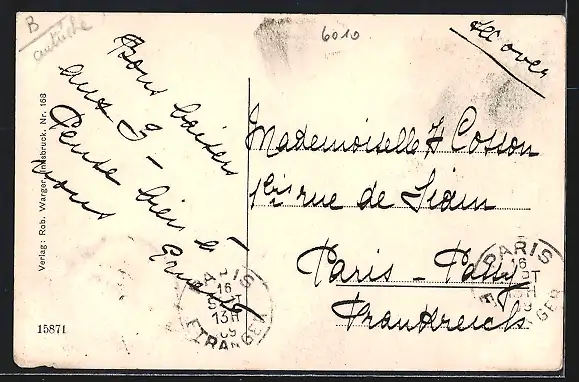 B
autriche
6010
See over
Bons baisers
aux 3 -
Pense bien à
vous
Mademoiselle H Cosson
rue de Siam
Paris - Passy
Frankreich
PARIS
16
13H
09
ETRANGER
PARIS
16
13H
09
Verlag: Rob. Warger, Innsbruck. Nr. 168
15871